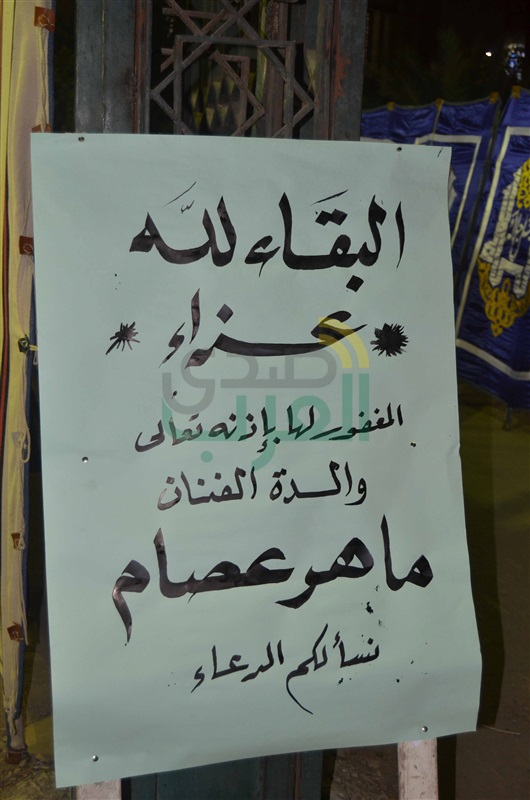 البقاء لله
عزاء
المغفور لها بإذنه تعالى
والدة الفنان
ماهر عصام
نسألكم الدعاء
صدى
العرب